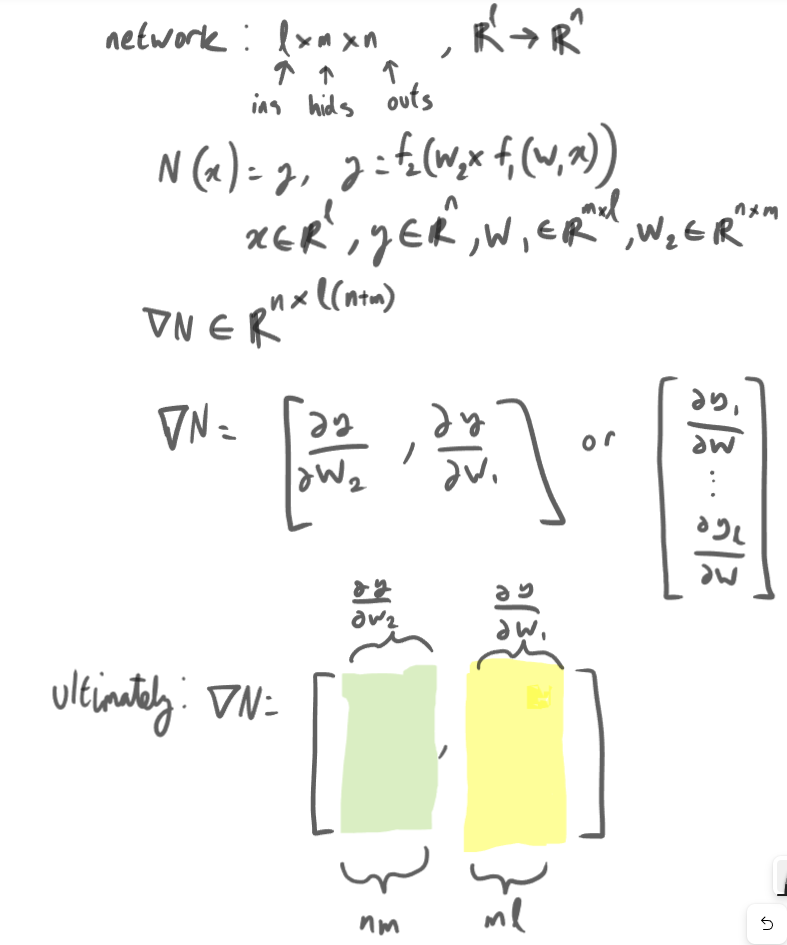 network : l×m×n , ℝˡ → ℝⁿ
↑ ↑ ↑
ins hids outs
N(x) = y, y = f₂(W₂× f₁(W₁x))
x∈ℝˡ, y∈ℝⁿ, W₁∈ℝ^{m×l}, W₂∈ℝ^{n×m}
∇N ∈ ℝ^{n×l(n+m)}
∇N = [∂y/∂W₂ , ∂y/∂W₁] or [∂y₁/∂W ⋮ ∂y_l/∂W]
∂y/∂W₂ ∂y/∂W₁
Ultimately: ∇N = [ , ]
nm ml